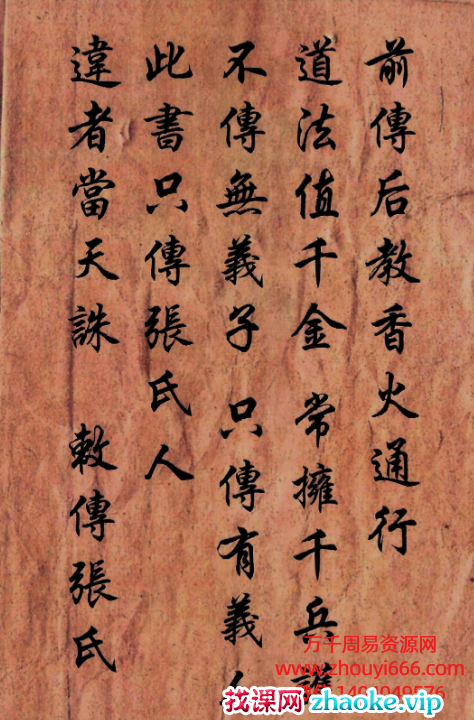 前傳后教香火通行
道法值千金 常擁千兵護
不傳無義子 只傳有義人
此書只傳張氏人
違者當天誅 敕傳張氏
万千周易资源网
www.zhouyi666.com
找课网 zhaoke.vip